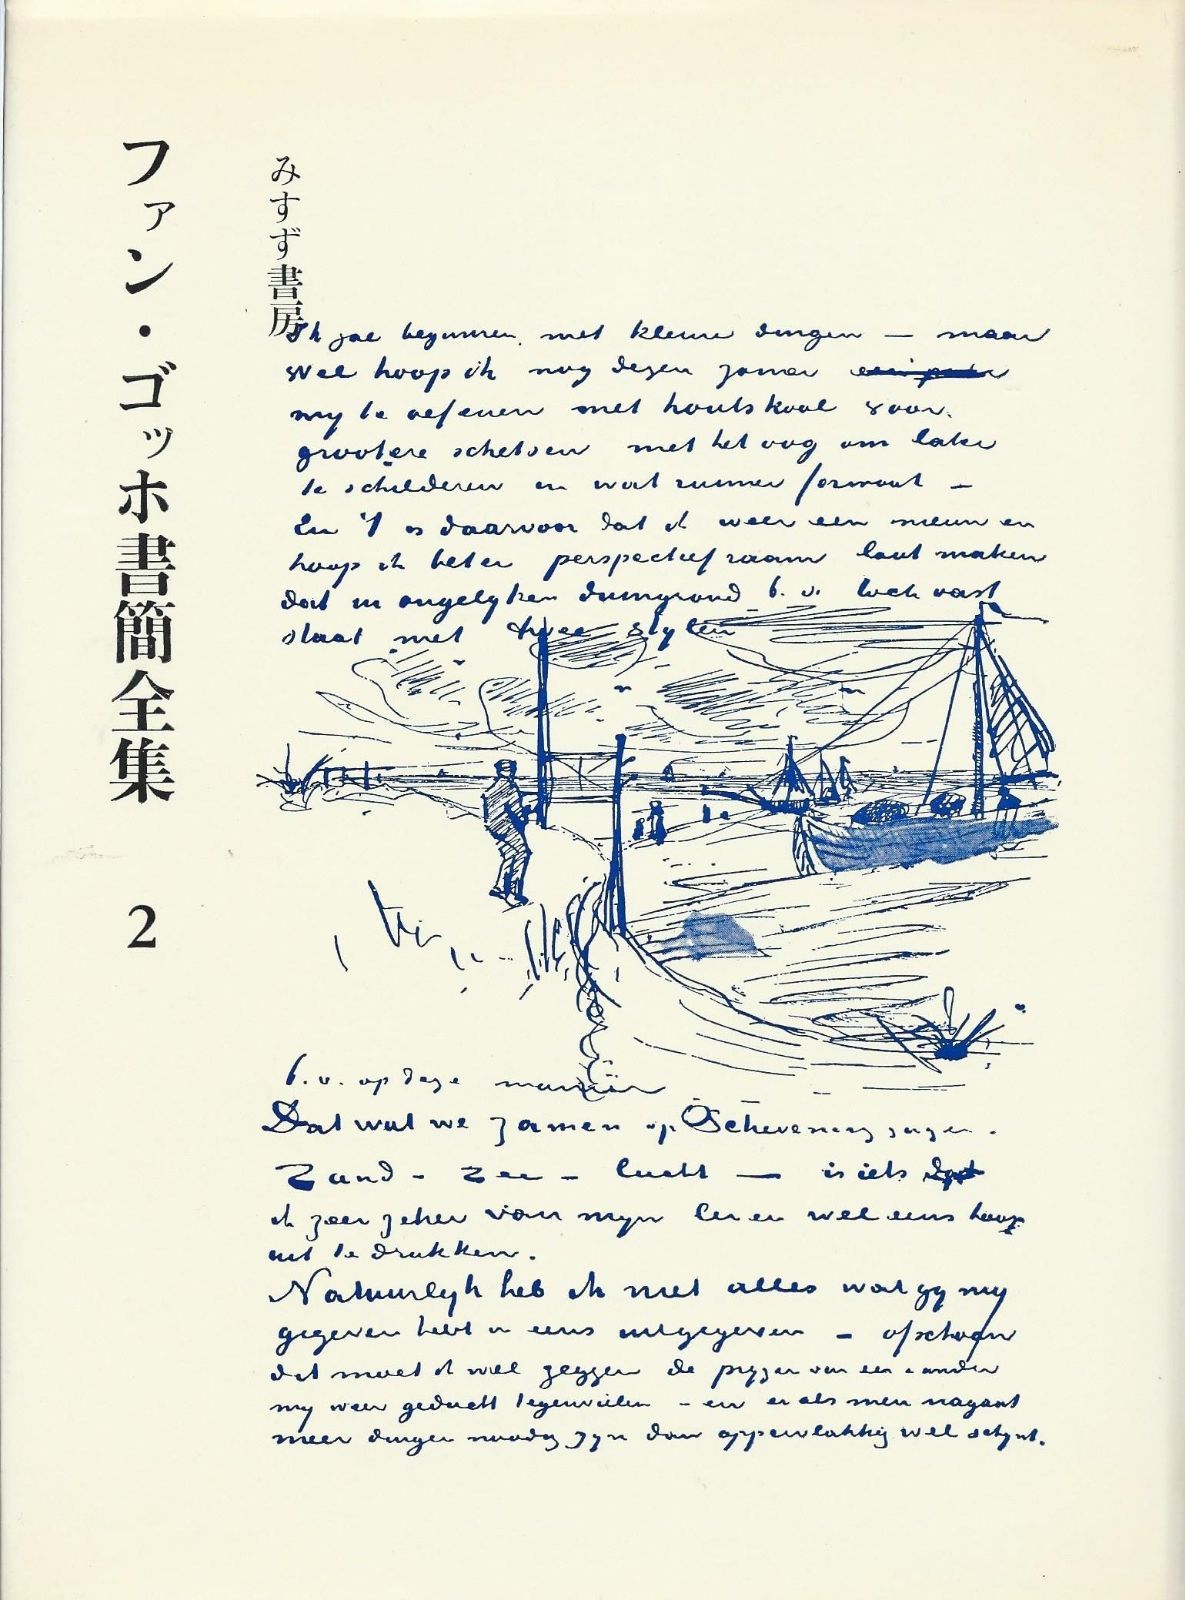 ファン・ゴッホ書簡全集 2
みすず書房
Ik zal beginnen met kleine dingen — maar
wel hoop ik nog dezen zomer
my te oefenen met houtskool voor
grootere schetsen met het oog om later
te schilderen in wat ruimer formaat —
En 't is daarvoor dat ik weer een nieuw en
hoop ik beter perspectiefraam laat maken
dat in ongelyken duingrond b. v. toch vast
staat met twee stylen
b. v. op deze manier
Dat wat we zamen op Schevening zagen.
Zand – Zee – lucht — is iets
ik zeer zeker van myn leven wel eens hoop
uit te drukken.
Natuurlyk heb ik niet alles wat gy my
gegeven hebt in eens uitgegeven – ofschoon
dat moet ik wel zeggen de pryzen van een & ander
my weer geducht tegenvielen – en er als men nagaat
meer dingen noodig zyn dan oppervlakkig wel schynt.